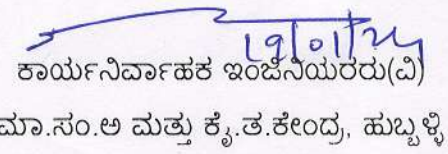 19/01/24
ಕಾರ್ಯನಿರ್ವಾಹಕ ಇಂಜಿನಿಯರರು(ವಿ)
ಮಾ.ಸಂ.ಅ ಮತ್ತು ಕೈ.ತ.ಕೇಂದ್ರ, ಹುಬ್ಬಳ್ಳಿ